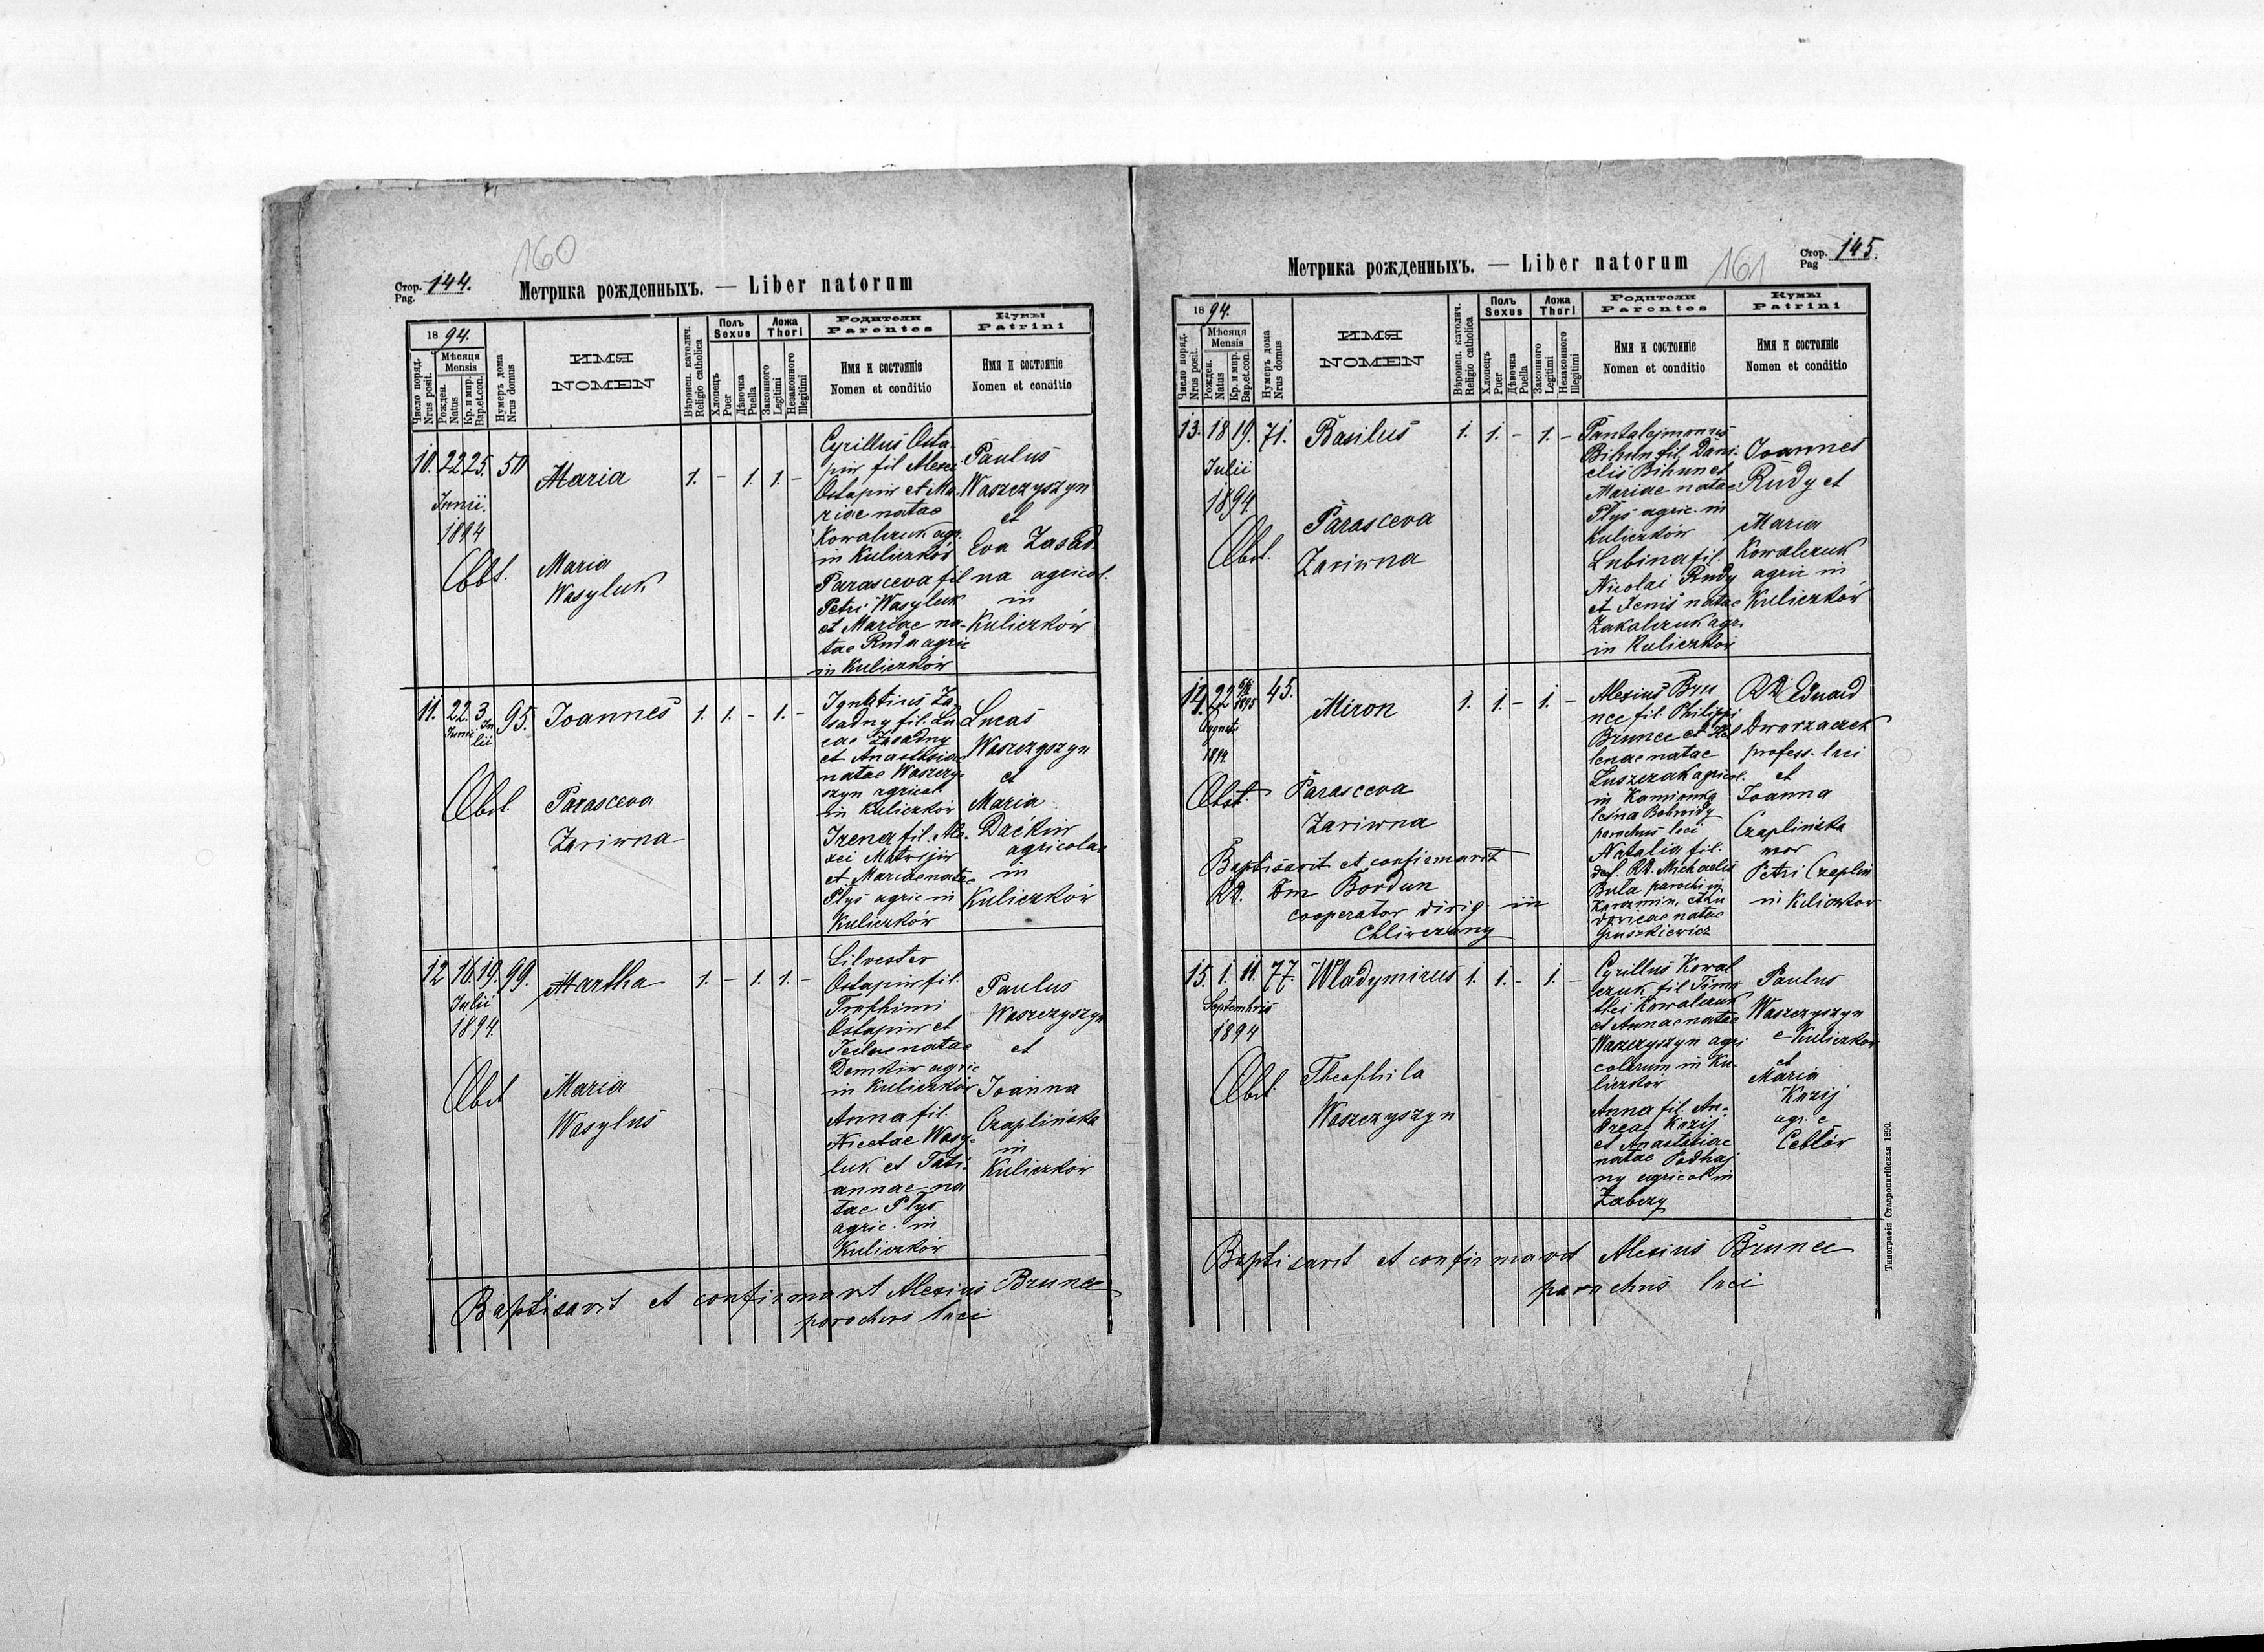 160
Стор. 144.
Pag.
Метрика рожденныхъ. — Liber natorum
1894.
Число поряд.
Nrus posit.
Мѣсяця
Mensis
Рожден.
Natus
Кр. и мир.
Bap.et.con.
Нумеръ дома
Nrus domus
ИМЯ
NOMEN
Вѣроисп. католич.
Religio catholica
Полъ
Sexus
Хлопецъ
Puer
Дѣвочка
Puella
Ложа
Thori
Законного
Legitimi
Незаконного
Illegitimi
Родители
Parentes
Имя и состояніе
Nomen et conditio
Кумы
Patrini
Имя и состояніе
Nomen et conditio
10. 22 25. 50 Maria 1. - 1. 1. -
Junii.
1894
Obst.
Maria
Wasyluk
Cyrillus Osta-
piw fil Alexei
Ostapiw et Ma-
riae natae
Kowalczuk agr.
in Kuliczków
Parasceva fil
Petri Wasyluk
et Mariae na-
tae Ruda agric
in Kuliczków
Paulus
Waszczyszyn
et
Eva Zasad-
na agricol.
in
Kuliczków
11. 22. 3. 95. Joannes 1. 1. - 1. -
Junii Ju
lii
Obst.
Parasceva
Zariwna
Ignatius Za
sadny fil. Lu
cae Zasadny
et Anastasiae
natae Waszczy-
szyn agricol.
in Kuliczków
Irena fil. Ale-
xei Matwijiw
et Mariae natae
Plys agric in
Kuliczków
Lucas
Waszczyszyn
et
Maria
Daćkiw
agricolae
in
Kuliczków
12 16. 19. 99. Martha 1. - 1. 1. -
Julii
1894.
Obst
Maria
Wasylus
Silvester
Ostapiw fil.
Trophimi
Ostapiw et
Teclae natae
Demkiw agric
in Kuliczków
Anna fil.
Nicetae Wasy-
luk et Tati-
annae na
tae Plys
agric. in
Kuliczków
Paulus
Waszczyszyn
et
Joanna
Czaplińska
in
Kuliczków
Baptisavit et confirmavit Alexius Brunec
parochus loci
161
Стор. 145.
Pag
Метрика рожденныхъ. — Liber natorum
1894.
Число поряд.
Nrus posit.
Мѣсяця
Mensis
Рожден.
Natus
Кр. и мир.
Bap.et.con.
Нумеръ дома
Nrus domus
ИМЯ
NOMEN
Вѣроисп. католич.
Religio catholica
Полъ
Sexus
Хлопецъ
Puer
Дѣвочка
Puella
Ложа
Thori
Законного
Legitimi
Незаконного
Illegitimi
Родители
Parentes
Имя и состояніе
Nomen et conditio
Кумы
Patrini
Имя и состояніе
Nomen et conditio
13. 18 19. 71. Basilus 1. 1. - 1. -
Julii
1894.
Obst.
Parasceva
Zariwna
Pantalejmonus
Bihun fil. Dani-
elis Bihun et
Mariae natae
Plys agric. in
Kuliczków
Lubina fil.
Nicolai Rudy
et Xenis natae
Zakalczuk agr.
in Kuliczków
Joannes
Rudy et
Maria
Kowalczuk
agric in
Kuliczków
14. 22 1895 45. Miron 1. 1. - 1. -
Augusti
1894.
Obst.
Parasceva
Zariwna
Baptisavit et confirmavit
RD. Dm Bordun
cooperator dirig. in
Chliwczany
Alexius Bru
nec fil. Philippi
Brunec et Hel
lenae natae
Luszczak agricol.
in Kamionka
leśna
parochus loci
Natalia fil.
def. RD. Michaelis
Buła parochi in
natae
Gruszkiewicz
RD Eduard
Dworzaczek
profess. loci
et
Joanna
Czaplińska
uxor
Petri Czaplin
in Kuliczkow
15. 1. 11. 77. Wladymirus 1. 1. - 1. -
Septembris
1894
Obst.
Theophila
Waszczyszyn
Cyrillus Kowal
czuk fil Timo
thei Kowalczuk
et Annae natae
Waszczyszyn agri
colarum in Ku-
liczków
Anna fil. An-
dreae Kuzij
et Anastasiae
natae Podhaj
ny agricol in
Zabczy
Paulus
Waszczyszyn
e Kuliczków
et
Maria
Kuzij
agr. e
Cebłów
Baptisavit et confirmavit Alexius Brunec
parochus loci
Типографія Ставропигійская 1890.